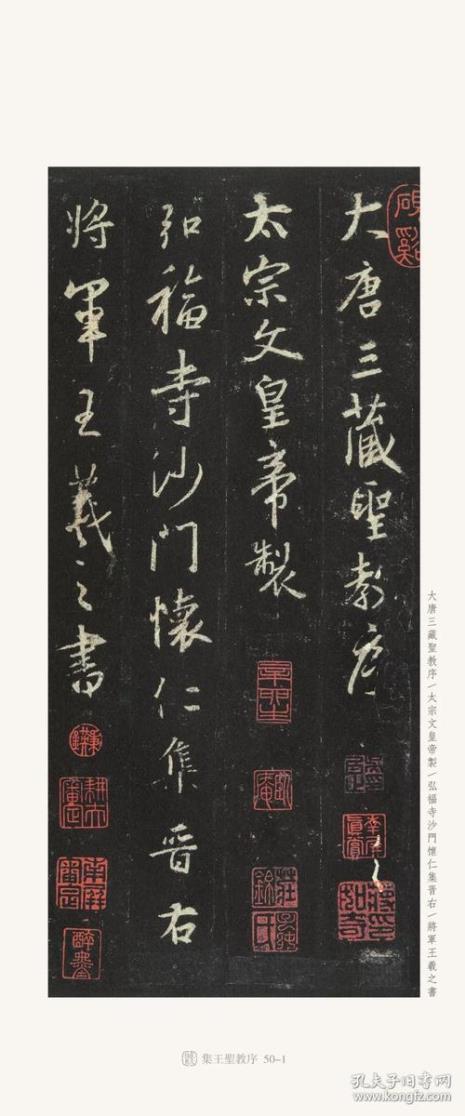 大唐三藏聖教序
太宗文皇帝製
弘福寺沙門懷仁集晋右
將軍王羲之書
大唐三藏聖教序/太宗文皇帝製/弘福寺沙門懷仁集晋右/將軍王羲之書
集王聖教序 50-1
孔夫子旧书网
www.kongfz.com